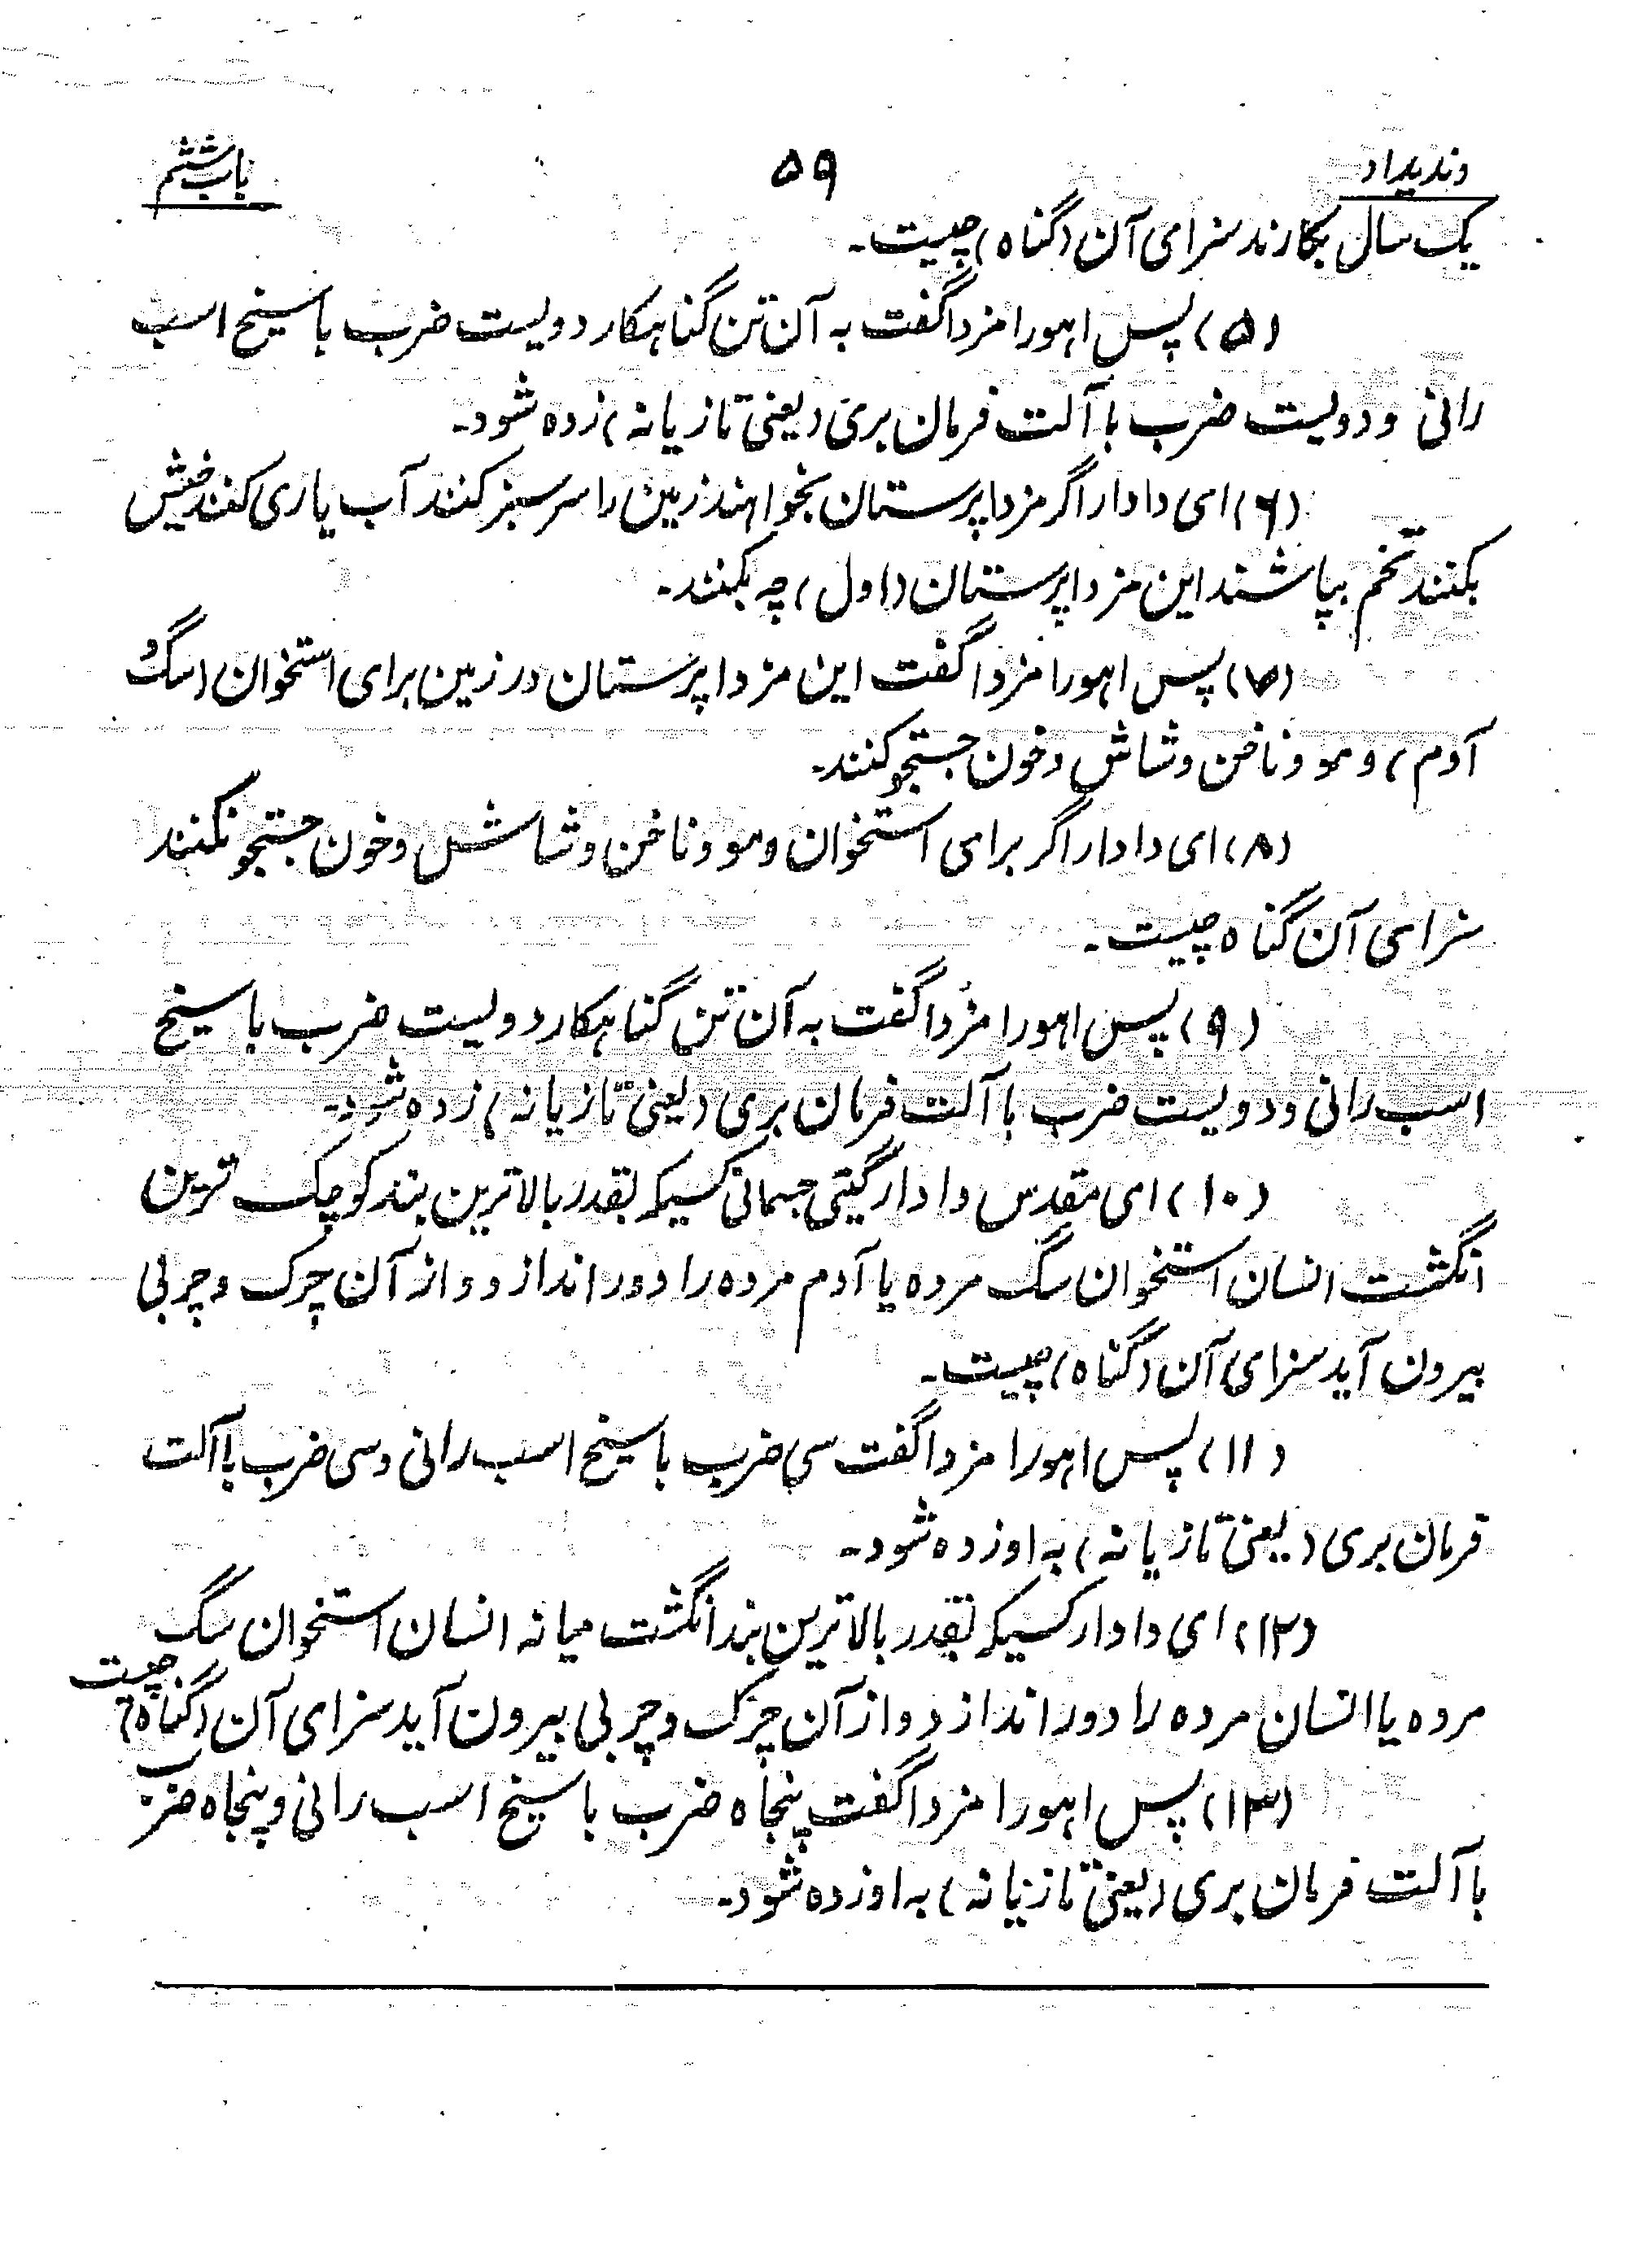 وندیداد
۵۹
باب ششم
یک سال بکارند سزای آن (گناه) چیست۔
(۵) پس اهورا مزدا گفت به آن تن گناهکار دویست ضرب با سیخ اسب
رانی و دویست ضرب با آلت فرمان بری (یعنی تازیانه) زده شود۔
(۶) ای دادار اگر مزدا پرستان بخواهند زمین را سرسبز کنند آب یاری کنند خیش
بکنند تخم بپاشند این مزدا پرستان (اول) چه بکنند۔
(۷) پس اهورا مزدا گفت این مزدا پرستان در زمین برای استخوان (سگ و
آدم) و مو و ناخن و شاش و خون جستجو کنند۔
(۸) ای دادار اگر برای استخوان و مو و ناخن و شاش و خون جستجو نکنند
سزای آن گناه چیست۔
(۹) پس اهورا مزدا گفت به آن تن گناهکار دویست ضرب با سیخ
اسب رانی و دویست ضرب با آلت فرمان بری (یعنی تازیانه) زده شود۔
(۱۰) ای مقدس دادار گیتی جسمانی کسیکه بقدر بالاترین بند کوچک ترین
انگشت انسان استخوان سگ مرده یا آدم مرده را دور اندازد و از آن چرک و چربی
بیرون آید سزای آن (گناه) چیست۔
(۱۱) پس اهورا مزدا گفت سی ضرب با سیخ اسب رانی و سی ضرب با آلت
فرمان بری (یعنی تازیانه) به او زده شود۔
(۱۲) ای دادار کسیکه بقدر بالاترین بند انگشت میانه انسان استخوان سگ
مرده یا انسان مرده را دور اندازد و از آن چرک و چربی بیرون آید سزای آن (گناه) چیست
(۱۳) پس اهورا مزدا گفت پنجاه ضرب با سیخ اسب رانی و پنجاه ضرب
با آلت فرمان بری (یعنی تازیانه) به او زده شود۔